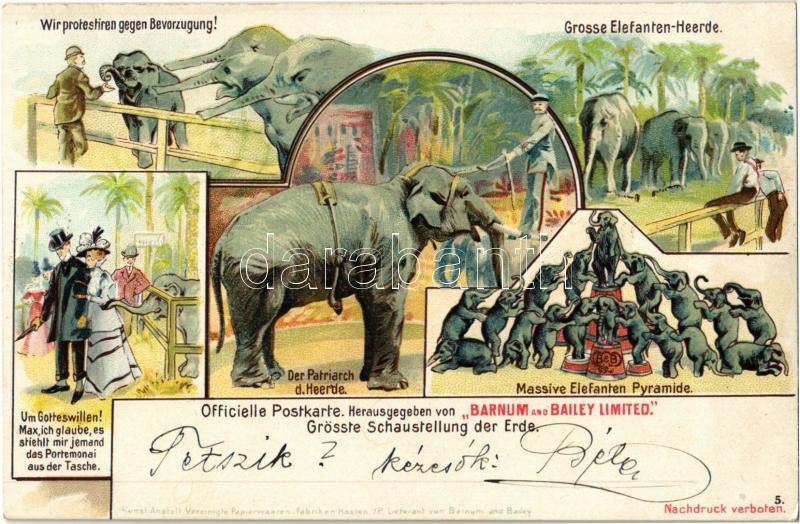 Wir protestiren gegen Bevorzugung!
Grosse Elefanten-Heerde.
darabanth
Der Patriarch
d. Heerde.
B&B
Massive Elefanten Pyramide.
Um Gotteswillen!
Max, ich glaube, es
stiehlt mir jemand
das Portemonai
aus der Tasche.
Officielle Postkarte. Herausgegeben von „BARNUM AND BAILEY LIMITED."
Grösste Schaustellung der Erde.
Tetszik? kézcsók: Béla
5.
Nachdruck verboten.
Kunst-Anstalt Vereinigte Papierwaaren-Fabriken Kosten. /P. Lieferant von Barnum and Bailey